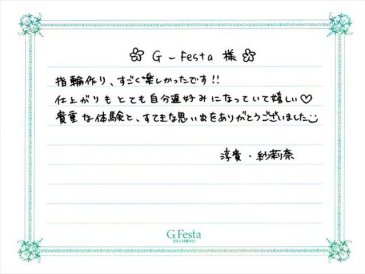 G-Festa 様
指輪作り、すごく楽しかったです!!
仕上がりもとても自分達好みになっていて嬉しい♡
貴重な体験と、すてきな思い出をありがとうございました
淳貴・紗莉奈
G.Festa
DIAMOND